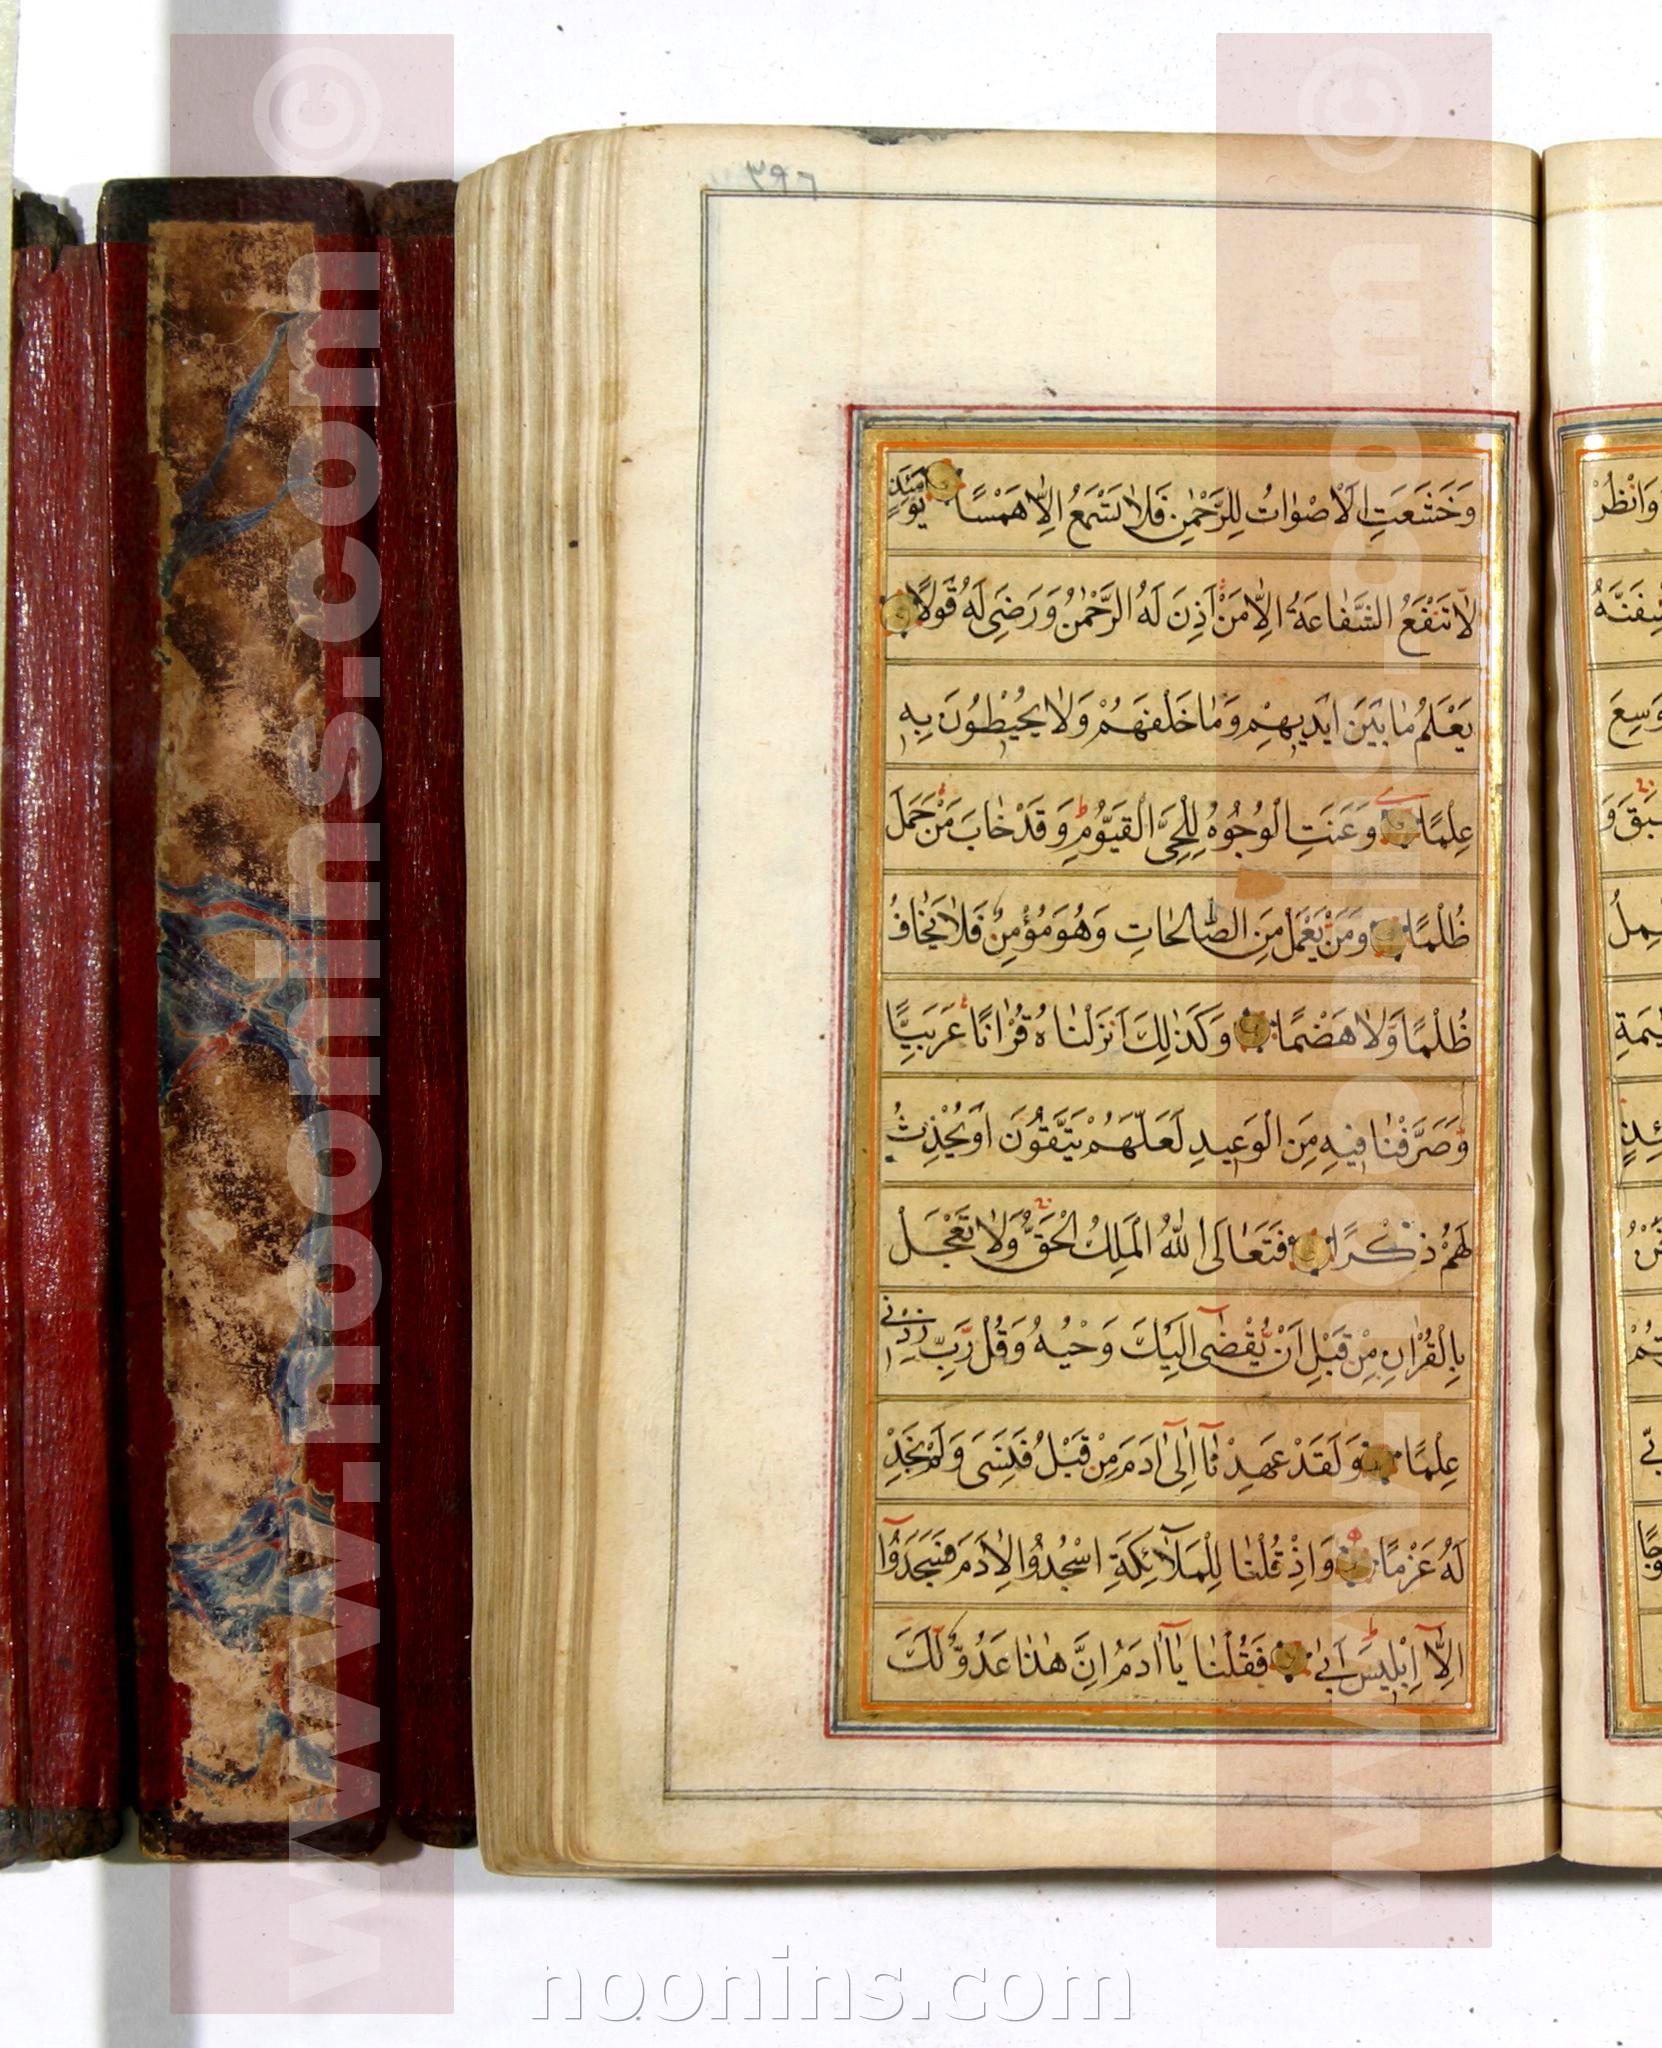 وَخَشَعَتِ الْاَصْوٰاتُ لِلرَّحْمٰنِ فَلاٰ تَسْمَعُ اِلاّٰ هَمْسًا يَوْمَئِذٍ
لاٰ تَنْفَعُ الشَّفٰاعَةُ اِلاّٰ مَنْ اَذِنَ لَهُ الرَّحْمٰنُ وَرَضِىَ لَهُ قَوْلًا
يَعْلَمُ مٰا بَيْنَ اَيْديهِمْ وَمٰا خَلْفَهُمْ وَلاٰ يُحيٖطُونَ بِهٖ
عِلْمًا وَعَنَتِ الْوُجُوهُ لِلْحَىِّ الْقَيُّومِ وَقَدْ خٰابَ مَنْ حَمَلَ
ظُلْمًا وَمَنْ يَعْمَلْ مِنَ الصّٰالِحٰاتِ وَهُوَ مُؤْمِنٌ فَلاٰ يَخٰافُ
ظُلْمًا وَلاٰ هَضْمًا وَكَذٰلِكَ اَنْزَلْنٰاهُ قُرْاٰنًا عَرَبِيًّا
وَصَرَّفْنٰا فيٖهِ مِنَ الْوَعيٖدِ لَعَلَّهُمْ يَتَّقُونَ اَوْ يُحْدِثُ
لَهُمْ ذِكْرًا فَتَعٰالَى اللّٰهُ الْمَلِكُ الْحَقُّ وَلاٰ تَعْجَلْ
بِالْقُرْاٰنِ مِنْ قَبْلِ اَنْ يُقْضٰى اِلَيْكَ وَحْيُهُ وَقُلْ رَبِّ زِدْنيٖ
عِلْمًا وَلَقَدْ عَهِدْنٰٓا اِلٰٓى اٰدَمَ مِنْ قَبْلُ فَنَسِىَ وَلَمْ نَجِدْ
لَهُ عَزْمًا وَاِذْ قُلْنٰا لِلْمَلٰٓائِكَةِ اسْجُدُوا لِاٰدَمَ فَسَجَدُوٓا
اِلّٰٓا اِبْليٖسَ اَبٰى فَقُلْنٰا يٰٓا اٰدَمُ اِنَّ هٰذٰا عَدُوٌّ لَكَ
وَانْظُرْ
وَسِعَ
© www.noonins.com
© www.noonins.com
noonins.com